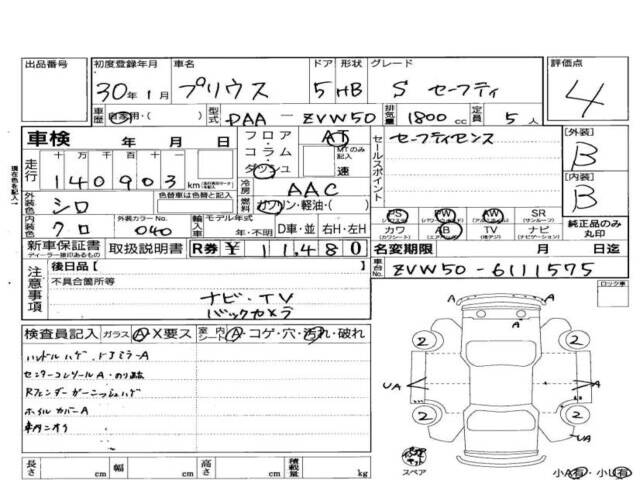 出品番号 初度登録年月 車名 ドア 形状 グレード 評価点
30年1月 プリウス 5 HB S セーフティ 4
車歴 自家用・( ) 型式 DAA-ZVW50 排気量 1800cc 定員 5人
現在色を記入
車検 年 月 日 フロア コラム ダッシュ AT MTのみ記入 速
セールスポイント セーフティセンス
[外装] B
走行 十 万 千 百 十 一
140903km
冷房 AAC
外装色 シロ 色替車は色替と記入 燃料 ガソリン・軽油・( )
[内装] B
内装色 クロ 外装カラーNo. 040 輸入車 モデル年式 年・不明 D車・並 右H・左H
PS PW AW SR (サンルーフ)
カワ (カワシート) AB TV (地デジ) ナビ (ナビゲーション)
純正品のみ丸印
新車保証書 ディーラー捺印あるもの 取扱説明書 R券 ¥ 11,480
名変期限 月 日迄
注意事項 後日品【
不具合箇所等
ナビ・TV
バックカメラ
車台No. ZVW50-6111575
ロック車
検査員記入 ガラス A・X要ス 室内シート A・コゲ・穴・汚れ・破れ
ハンドルハゲ、ドアミラーA
センターコンソールA・
Rフェンダーガーニッシュハゲ
ホイルカバーA
車内ニオイ
A A
2 2
UA A A
2 2
UA
スペア
小A有・小U有
長さ cm 幅 cm 高さ cm 積載量 kg